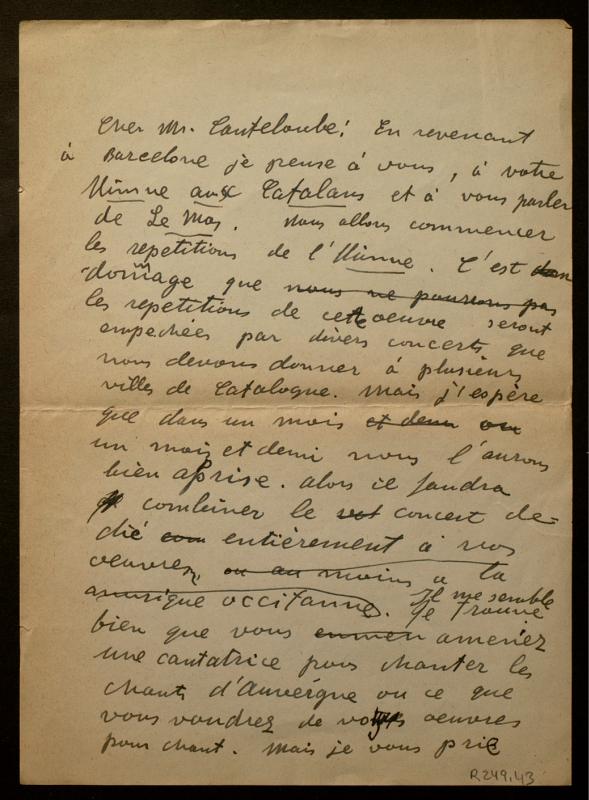 Cher Mr. Canteloube! En revenant
à Barcelone je pense à vous, à votre
Himne aux Catalans et à vous parler
de Le Mas. Nous allons commencer
les repetitions de l'Himne. C'est dom
-dommage que nous ne pourrons pas
les repetitions de cette oeuvre seront
empechées par divers concerts que
nous devons donner à plusieurs
villes de Catalogne. Mais j'espère
que dans un mois et demi ou
un mois et demi nous l'aurons
bien aprise. Alors il faudra
combiner le concert de-
dié entièrement à vos
oeuvres, ou au moins a la
musique occitanne. Il me semble
Je trouve
bien que vous ameniez
une cantatrice pour chanter les
chants d'Auvergne ou ce que
vous voudrez de vos oeuvres
pour chant. Mais je vous prie
R.249.43